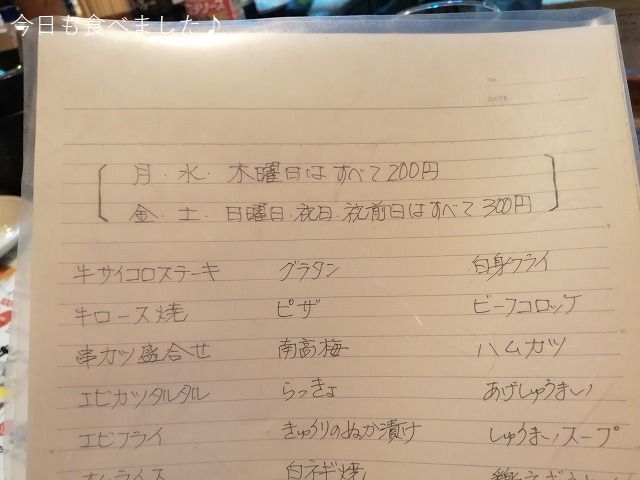 今日も食べました♪
ソース
No.
DATE
月・水・木曜日はすべて200円
金・土・日曜日・祝日・祝前日はすべて300円
牛サイコロステーキ グラタン 白身フライ
牛ロース焼 ピザ ビーフコロッケ
串カツ盛合せ 南高梅 ハムカツ
エビカツタルタル らっきょ あげしゅうまい
エビフライ きゅうりのぬか漬け しゅうまいスープ
白ネギ焼